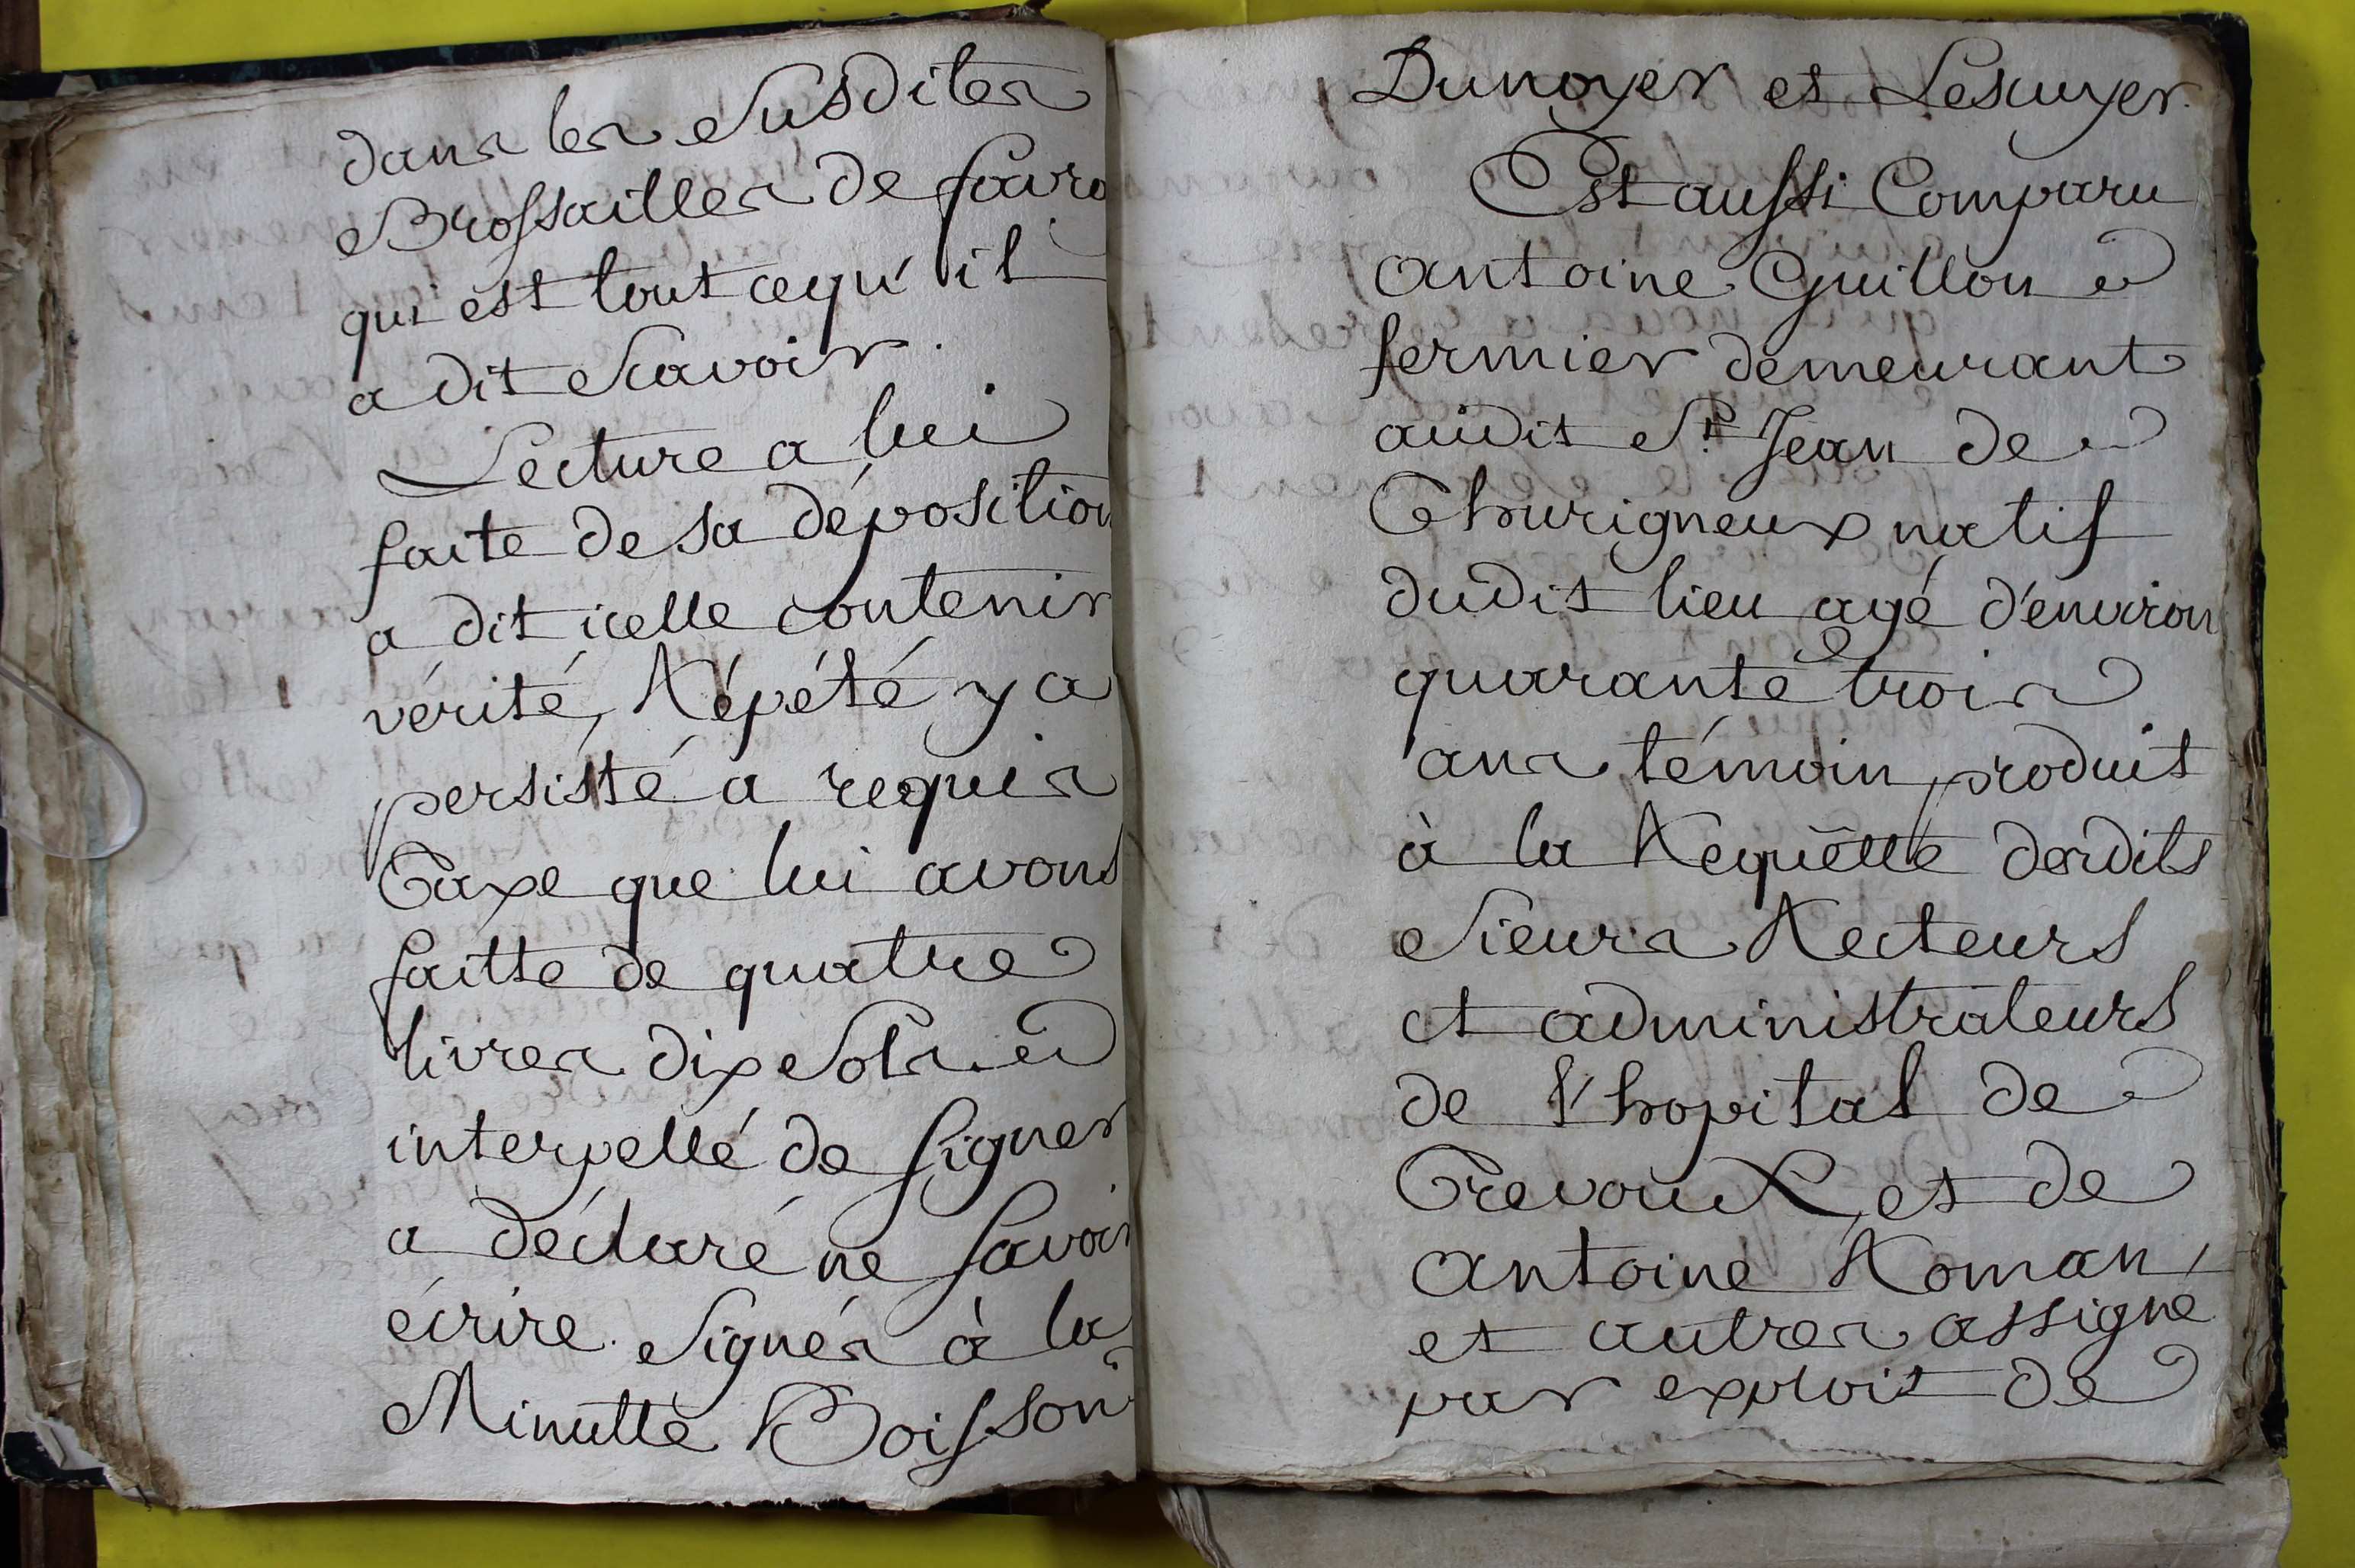 dans les Susdites
Brossailles de favro
qui est tout cequ'il
a dit Scavoir.
Lecture a lui
faite de sa déposition
a dit icelle contenir
vérité, Répété y a
persisté a requis
Taxe que lui avons
faitte de quatre
livres dix Sols
interpellé de signer
a déclaré ne savoir
écrire. Signés à la
Minutte Boisson
Dunoyer et Lescuyer.
Est aussi Comparu
antoine Guillon
fermier demeurant
audit St. Jean de
Thurigneux natif
dudit lieu agé d'environ
quarante trois
ans témoin produit
à la Requêtte desdits
Sieurs Recteurs
et administrateurs
de l'hopital de
Trevoux, et de
antoine Roman,
et autres assigné
par exploit de